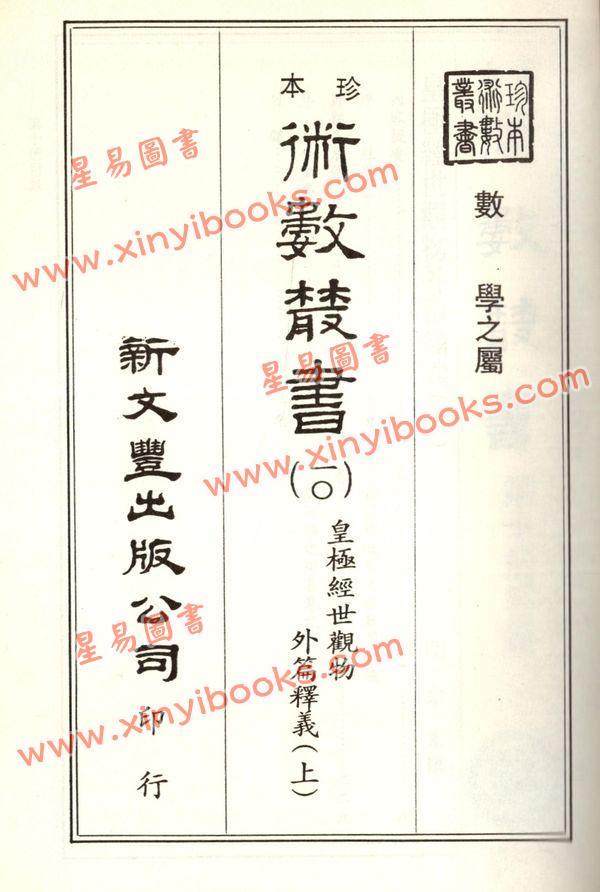 珍本術數叢書
數 學之屬
珍本
術數叢書(一〇)
皇極經世觀物
外篇釋義(上)
新文豐出版公司 印行
星易圖書
www.xinyibooks.com
星易圖書
www.xinyibooks.com
星易圖書
www.xinyibooks.com